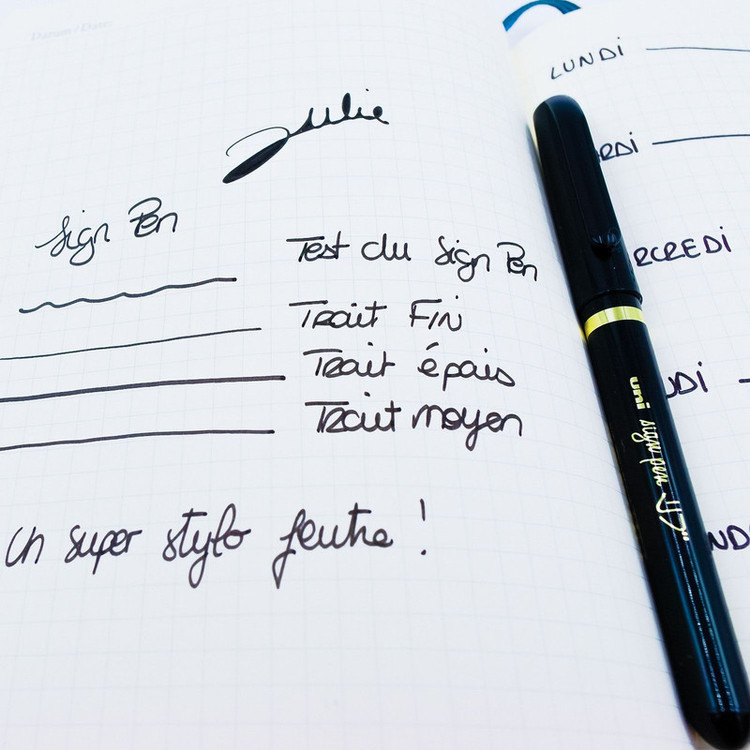 Datum / Date:
Julie
Sign Pen
Test du Sign Pen
Trait FIN
Trait épais
Trait moyen
Un super stylo feutre !
LUNDi
RDi
RCREDi
UDi
ND
uni sign pen